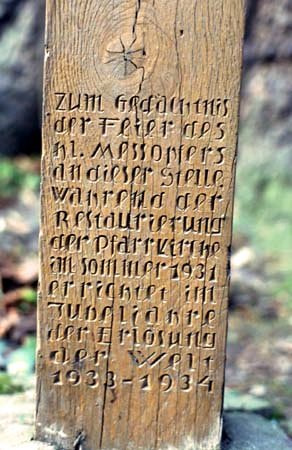 Zum Gedächtnis
der Feier des
hl. Messopfers
an dieser Stelle
während der
Restaurierung
der Pfarrkirche
im Sommer 1931
errichtet im
Jubeljahre
der Erlösung
der Welt
1933-1934